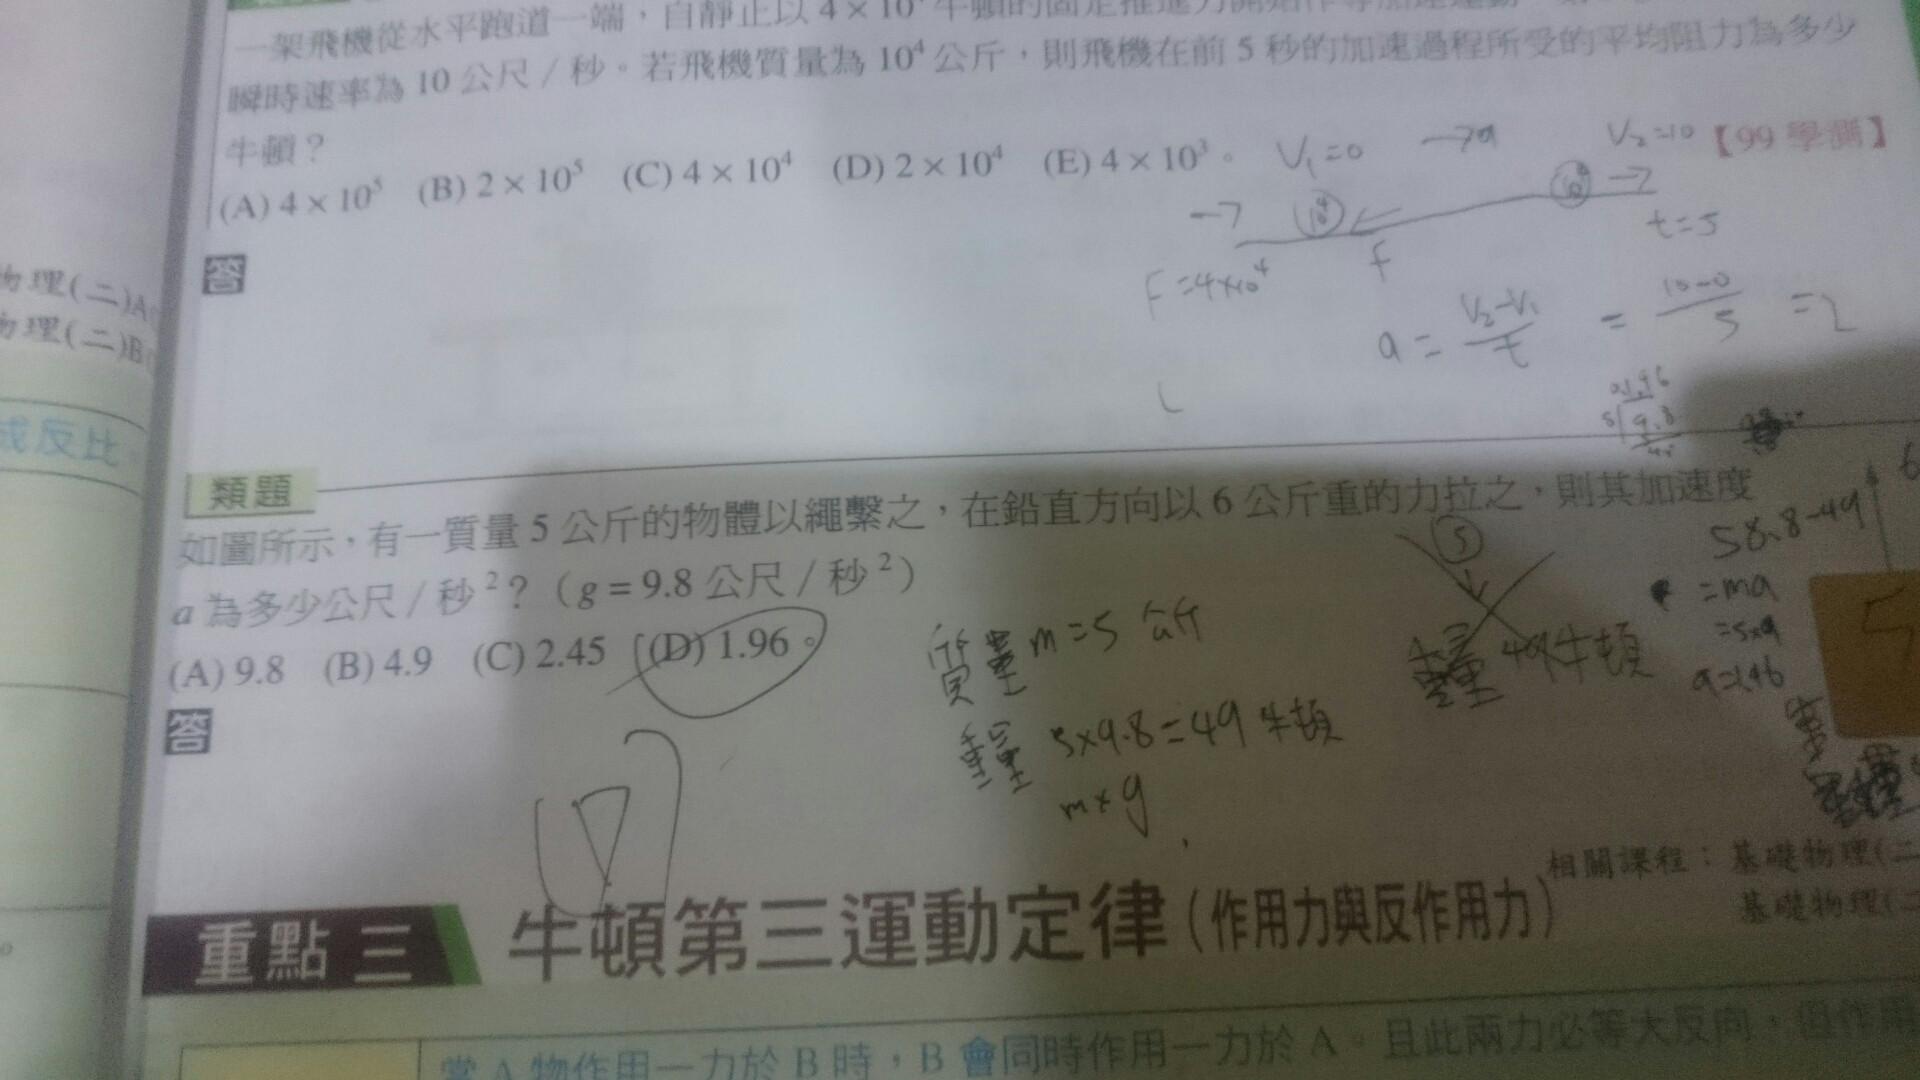 一架飛機從水平跑道一端，自靜止以 4 × 10
瞬時速率為 10 公尺／秒。若飛機質量為 10⁴ 公斤，則飛機在前 5 秒的加速過程所受的平均阻力為多少
牛頓？
(A) 4 × 10⁵ (B) 2 × 10⁵ (C) 4 × 10⁴ (D) 2 × 10⁴ (E) 4 × 10³。
【99 學測】
V₁=0 →a V₂=10
→ 10⁴ →
F=4×10⁴ f t=5
a = V₂-V₁/t = 10-0/5 = 2
答
物理(二)A
物理(二)B
成反比。
類題
如圖所示，有一質量 5 公斤的物體以繩繫之，在鉛直方向以 6 公斤重的力拉之，則其加速度
a 為多少公尺／秒²？（g = 9.8 公尺／秒²）
(A) 9.8 (B) 4.9 (C) 2.45 (D) 1.96。
答
質量 m=5 公斤
重量 5×9.8=49 牛頓
m×g
5
49牛頓
58.8-49
=ma
=5×a
相關課程：基礎物理(二
基礎物理(二
重點三 牛頓第三運動定律（作用力與反作用力）
當 A 物作用一力於 B 時，B 會同時作用一力於 A。且此兩力必等大反向，但作用